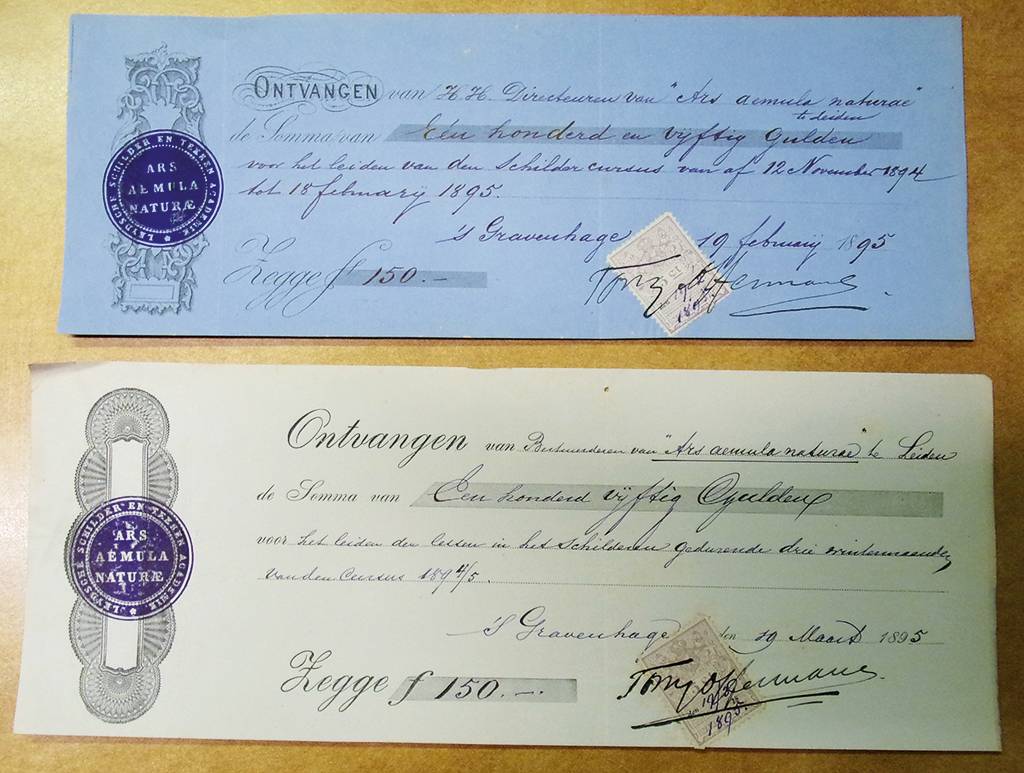 ONTVANGEN van H.H. Directeuren van "Ars aemula naturae"
te Leiden
de Somma van Eén honderd en vijftig Gulden
voor het leiden van den Schildercursus van af 12 November 1894
tot 18 februarij 1895.
's Gravenhage 19 februarij 1895
Zegge f 150.-
Tony Offermans
19
1895
LEYDSCHE SCHILDER EN TEEKEN ACADEMIE
ARS
AEMULA
NATURÆ
Ontvangen van Bestuurderen van "Ars aemula naturae" te Leiden
de Somma van Een honderd vijftig Gulden
voor het leiden der lessen in het Schilderen gedurende drie wintermaanden
van den Cursus 1894/5.
's Gravenhage den 19 Maart 1895
Zegge f 150.-.
Tony Offermans.
19
1895.
LEYDSCHE SCHILDER EN TEEKEN ACADEMIE
ARS
AEMULA
NATURÆ